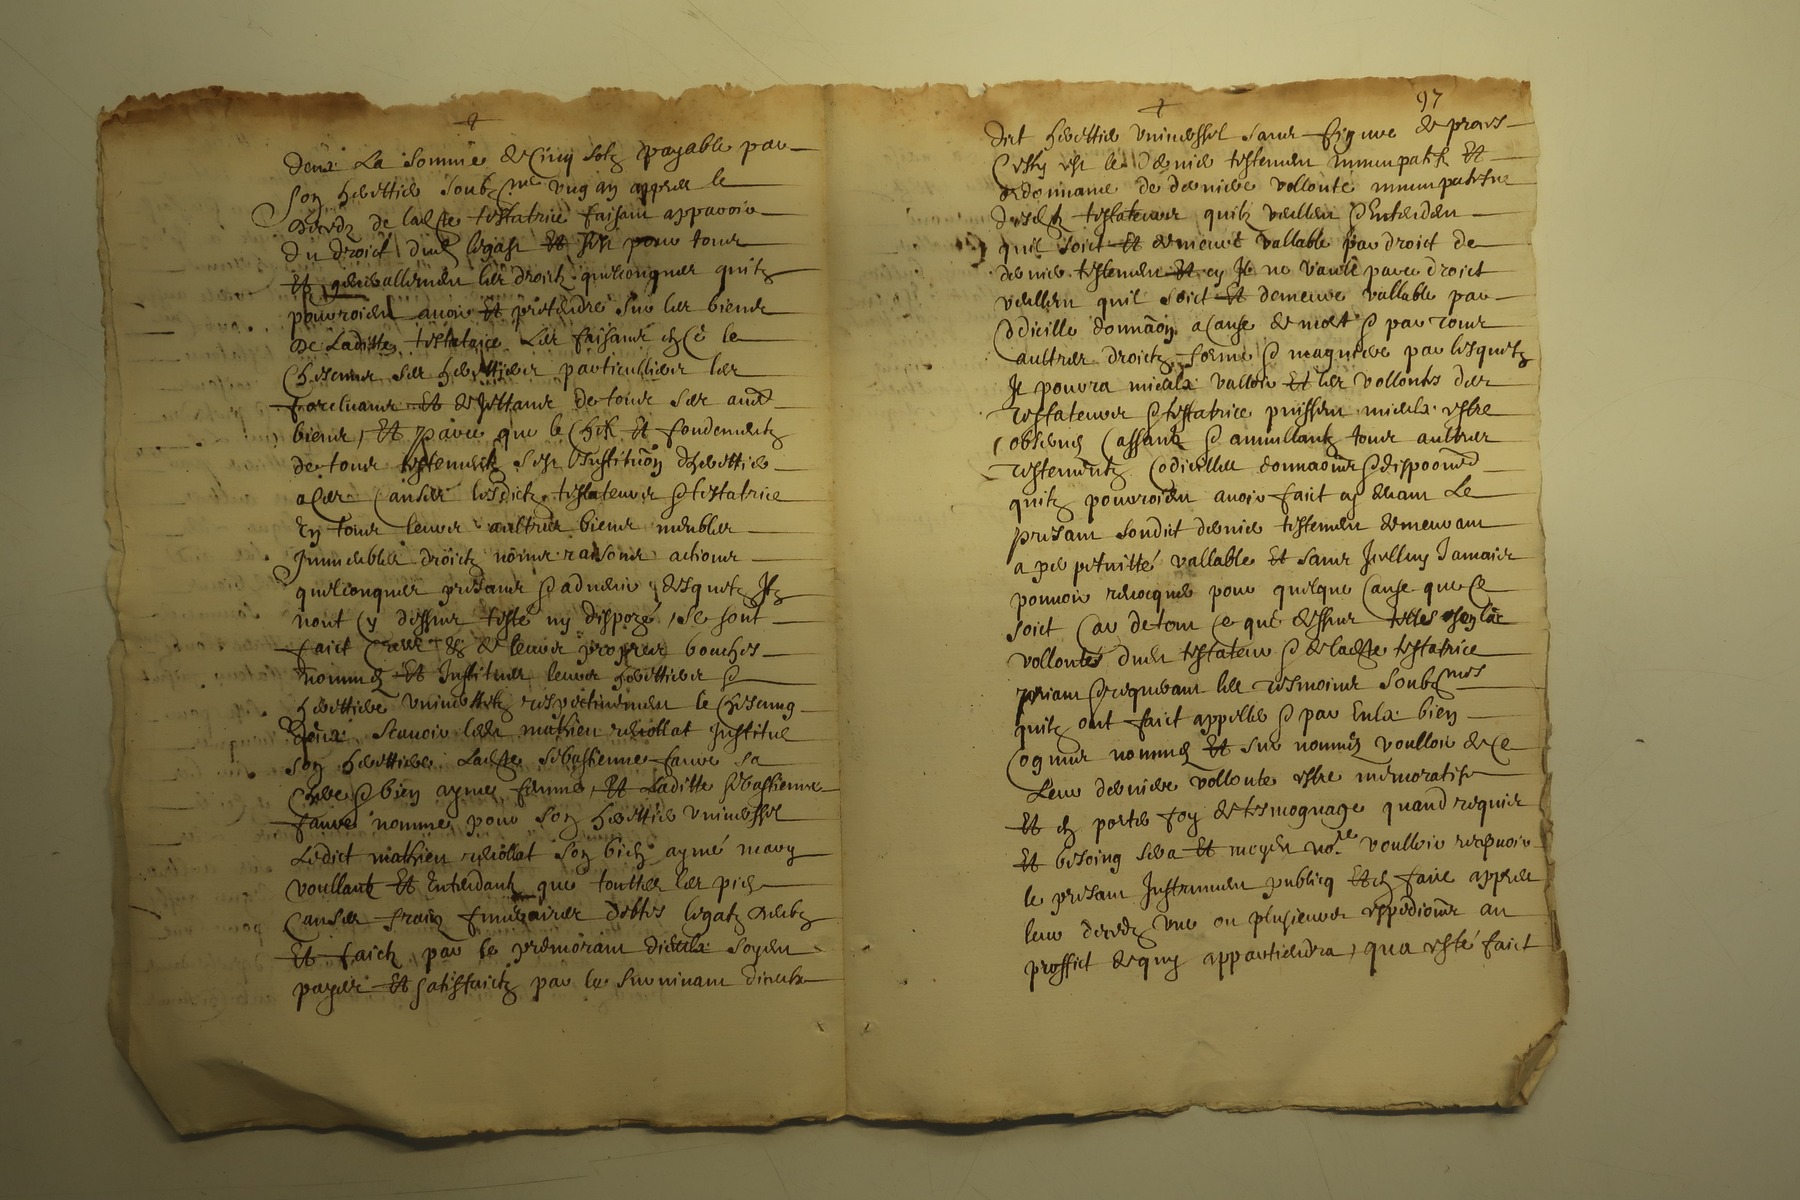 deux la somme de cinq solz payable par
son herettier soubz.me ung an appres le
decedz de ladite testatrice faisant apparoir
du droict dud. legast et sur pour tous
et generallement les droictz quelconques quilz
pourroient avoir et pretendre sur les biens
de laditte testatrice les faisant en ce le
chescung ses herettiers particulliers les
forcluant et dejettant de tous ses aud.
biens, et parce que le chef et fondementz
de tous testementz sest linstitution dherettier
a ces causes lesdictz testateur et testatrice
en tous leurs aultres biens meubles
immeubles droictz noms raisons actions
quelconques presans et advenir desquelz ilz
nont cy dessus testé ny disposé, se sont
faict de leurs propres bouches
nommes et institues leurs herettiers et
herettiere universelz respectivement le chescung
deux scavoir led. mathieu reliollat institue
son herettiere ladite sebastienne faure sa
chere et bien aymee femme, et laditte sebastienne
faure nomme pour son herettier universel
ledict mathieu reliollat son bien aymé mary
voullant et entendant que touttes les pies
causes fraiz funeraires debtes legatz
et faictz par le premorant diceulx soyent
payes et satisfaictz par le survivant diceulx
97
dict herettier universel sans figure de proces
cesty est le dernier testement nuncupatif et
ordonnance de derniere vollonté nuncupatifve
desdictz testateurs quilz veullent et entendent
quil soict et demeure vallable par droict de
dernier testement et sy il ne vault par ce droict
veullent quil soict et demeure vallable par
codicille donnaōn a cause de mort et par tous
aultres droictz forme et magniere par lesquelz
il pourra mieulx valloir et les vollontes des
testateurs et testatrice puissent mieulx estre
observes cassantz et annullantz tous aultres
testementz codicilles donnaōns et dispoōns
quilz pourroient avoir faict cy devant le
presant soudict dernier testement demeurant
a perpetuitté vallable et sans jamais
pouvoir revocquer pour quelque cause que ce
soict car de tout ce que dessus telles
vollontés dud. testateur et de ladite testatrice
priant et requerant les tesmoins soubz.nes
quilz ont faict appelles et par eulx bien
cognus nommes et surnommes voulloir de ce
leur derniere vollonte estre memoratifz
et en porter foy de tesmognage quand requis
et besoing sera et moyen no.re voulloir recepvoir
le presant instrument publicq et en faire appres
leur decedz une ou plusieurs expedicions au
proffict de quy appartiendra, qua esté faict